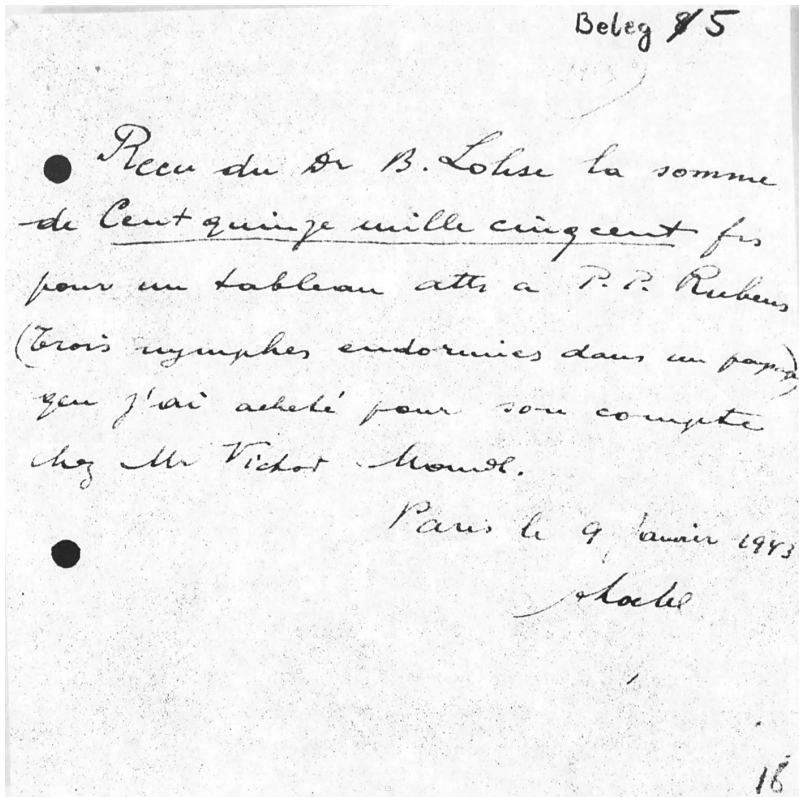 Beleg 5
Recu du Dr B. Lohse la somme
de Cent quinze mille cinq cent frs
pour un tableau att a P. P. Rubens
(Trois nymphes endormies dans un
que j'ai acheté pour son compte
chez Mr Victor
Paris le 9 Janvier 1943
18